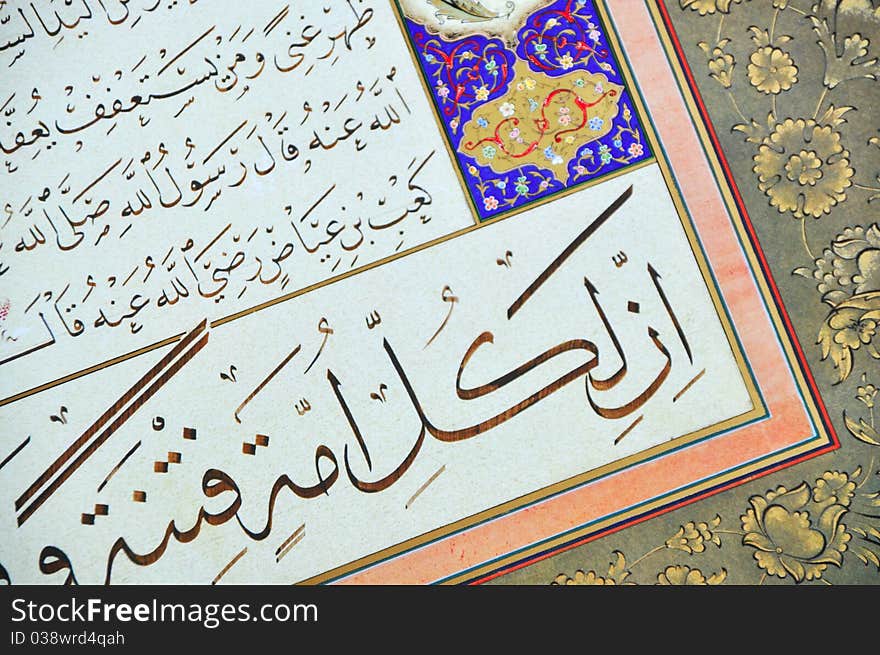 من اليد
ظَهْرِ غِنًى وَمَنْ يَسْتَعْفِفْ يُعِفَّ
اللهُ عَنْهُ قَالَ رَسُولُ اللهِ صَلَّى اللهُ
كَعْبِ بْنِ عِيَاضٍ رَضِيَ اللهُ عَنْهُ قَالَ
إِنَّ لِكُلِّ أُمَّةٍ فِتْنَةً و
StockFreeImages.com
ID 038wrd4qah